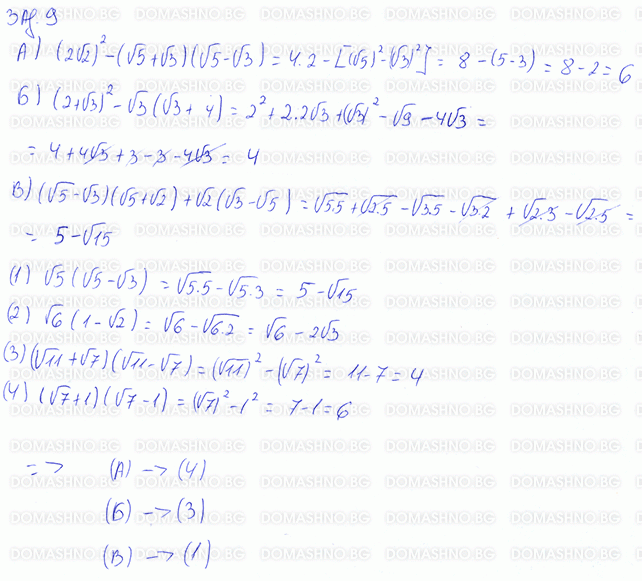 Заg. 9
А) (2√2)² - (√5+√3)(√5-√3) = 4.2 - [(√5)² - (√3)²] = 8 - (5-3) = 8 - 2 = 6
Б) (2+√3)² - √3(√3 + 4) = 2² + 2.2√3 + (√3)² - √9 - 4√3 =
= 4 + 4√3 + 3 - 3 - 4√3 = 4
В) (√5 - √3)(√5+√2) + √2(√3 - √5) = √5.5 + √2.5 - √3.5 - √3.2 + √2.3 - √2.5 =
= 5 - √15
(1) √5(√5-√3) = √5.5 - √5.3 = 5 - √15
(2) √6(1-√2) = √6 - √6.2 = √6 - 2√3
(3) (√11 + √7)(√11 - √7) = (√11)² - (√7)² = 11 - 7 = 4
(4) (√7+1)(√7-1) = (√7)² - 1² = 7 - 1 = 6
=> (А) -> (4)
(Б) -> (3)
(В) -> (1)